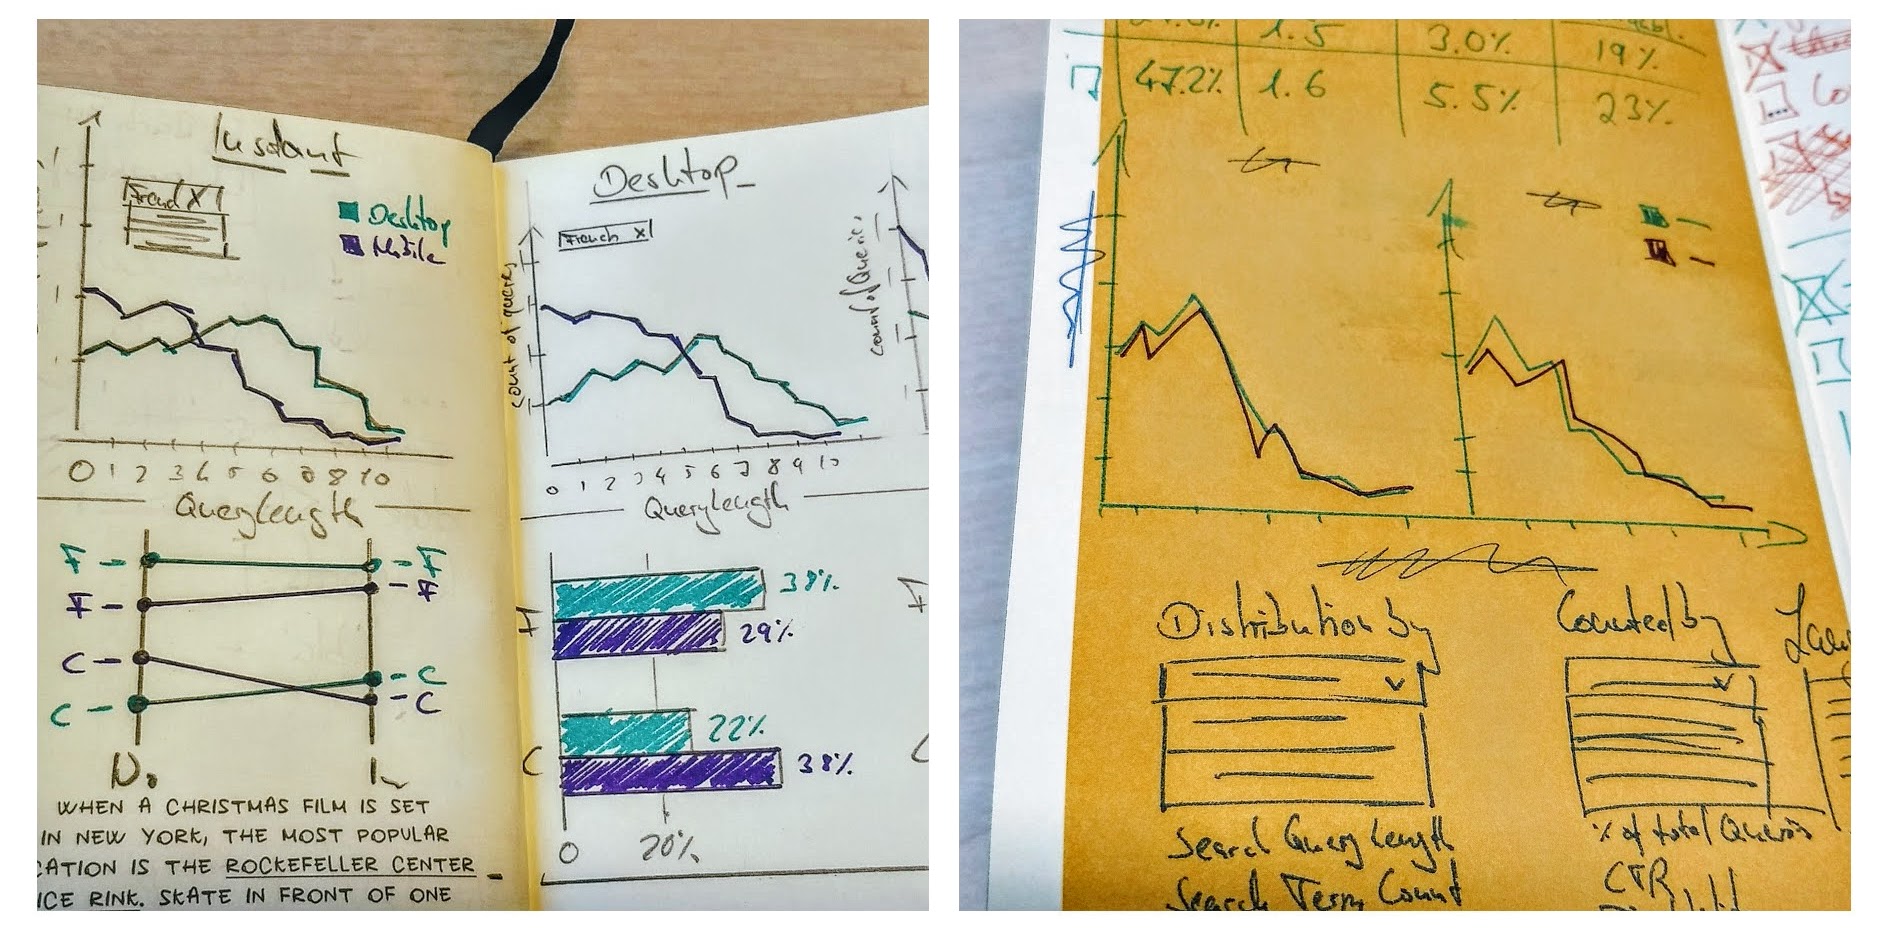 Instant
French X
Desktop
Mobile
0 1 2 3 4 5 6 7 8 9 10
Query Length
F F
F F
C C
C C
No In
WHEN A CHRISTMAS FILM IS SET
IN NEW YORK, THE MOST POPULAR
CATION IS THE ROCKEFELLER CENTER
ICE RINK. SKATE IN FRONT OF ONE
Desktop
French X
count of queries
Count of Queries
0 1 2 3 4 5 6 7 8 9 10
Query Length
F
38%
29%
C
22%
38%
0 20%
1.5 3.0% 19%
47.2% 1.6 5.5% 23%
Distribution by
Search Query Length
Search Term Count
Counted by
% of total Queries
CTR